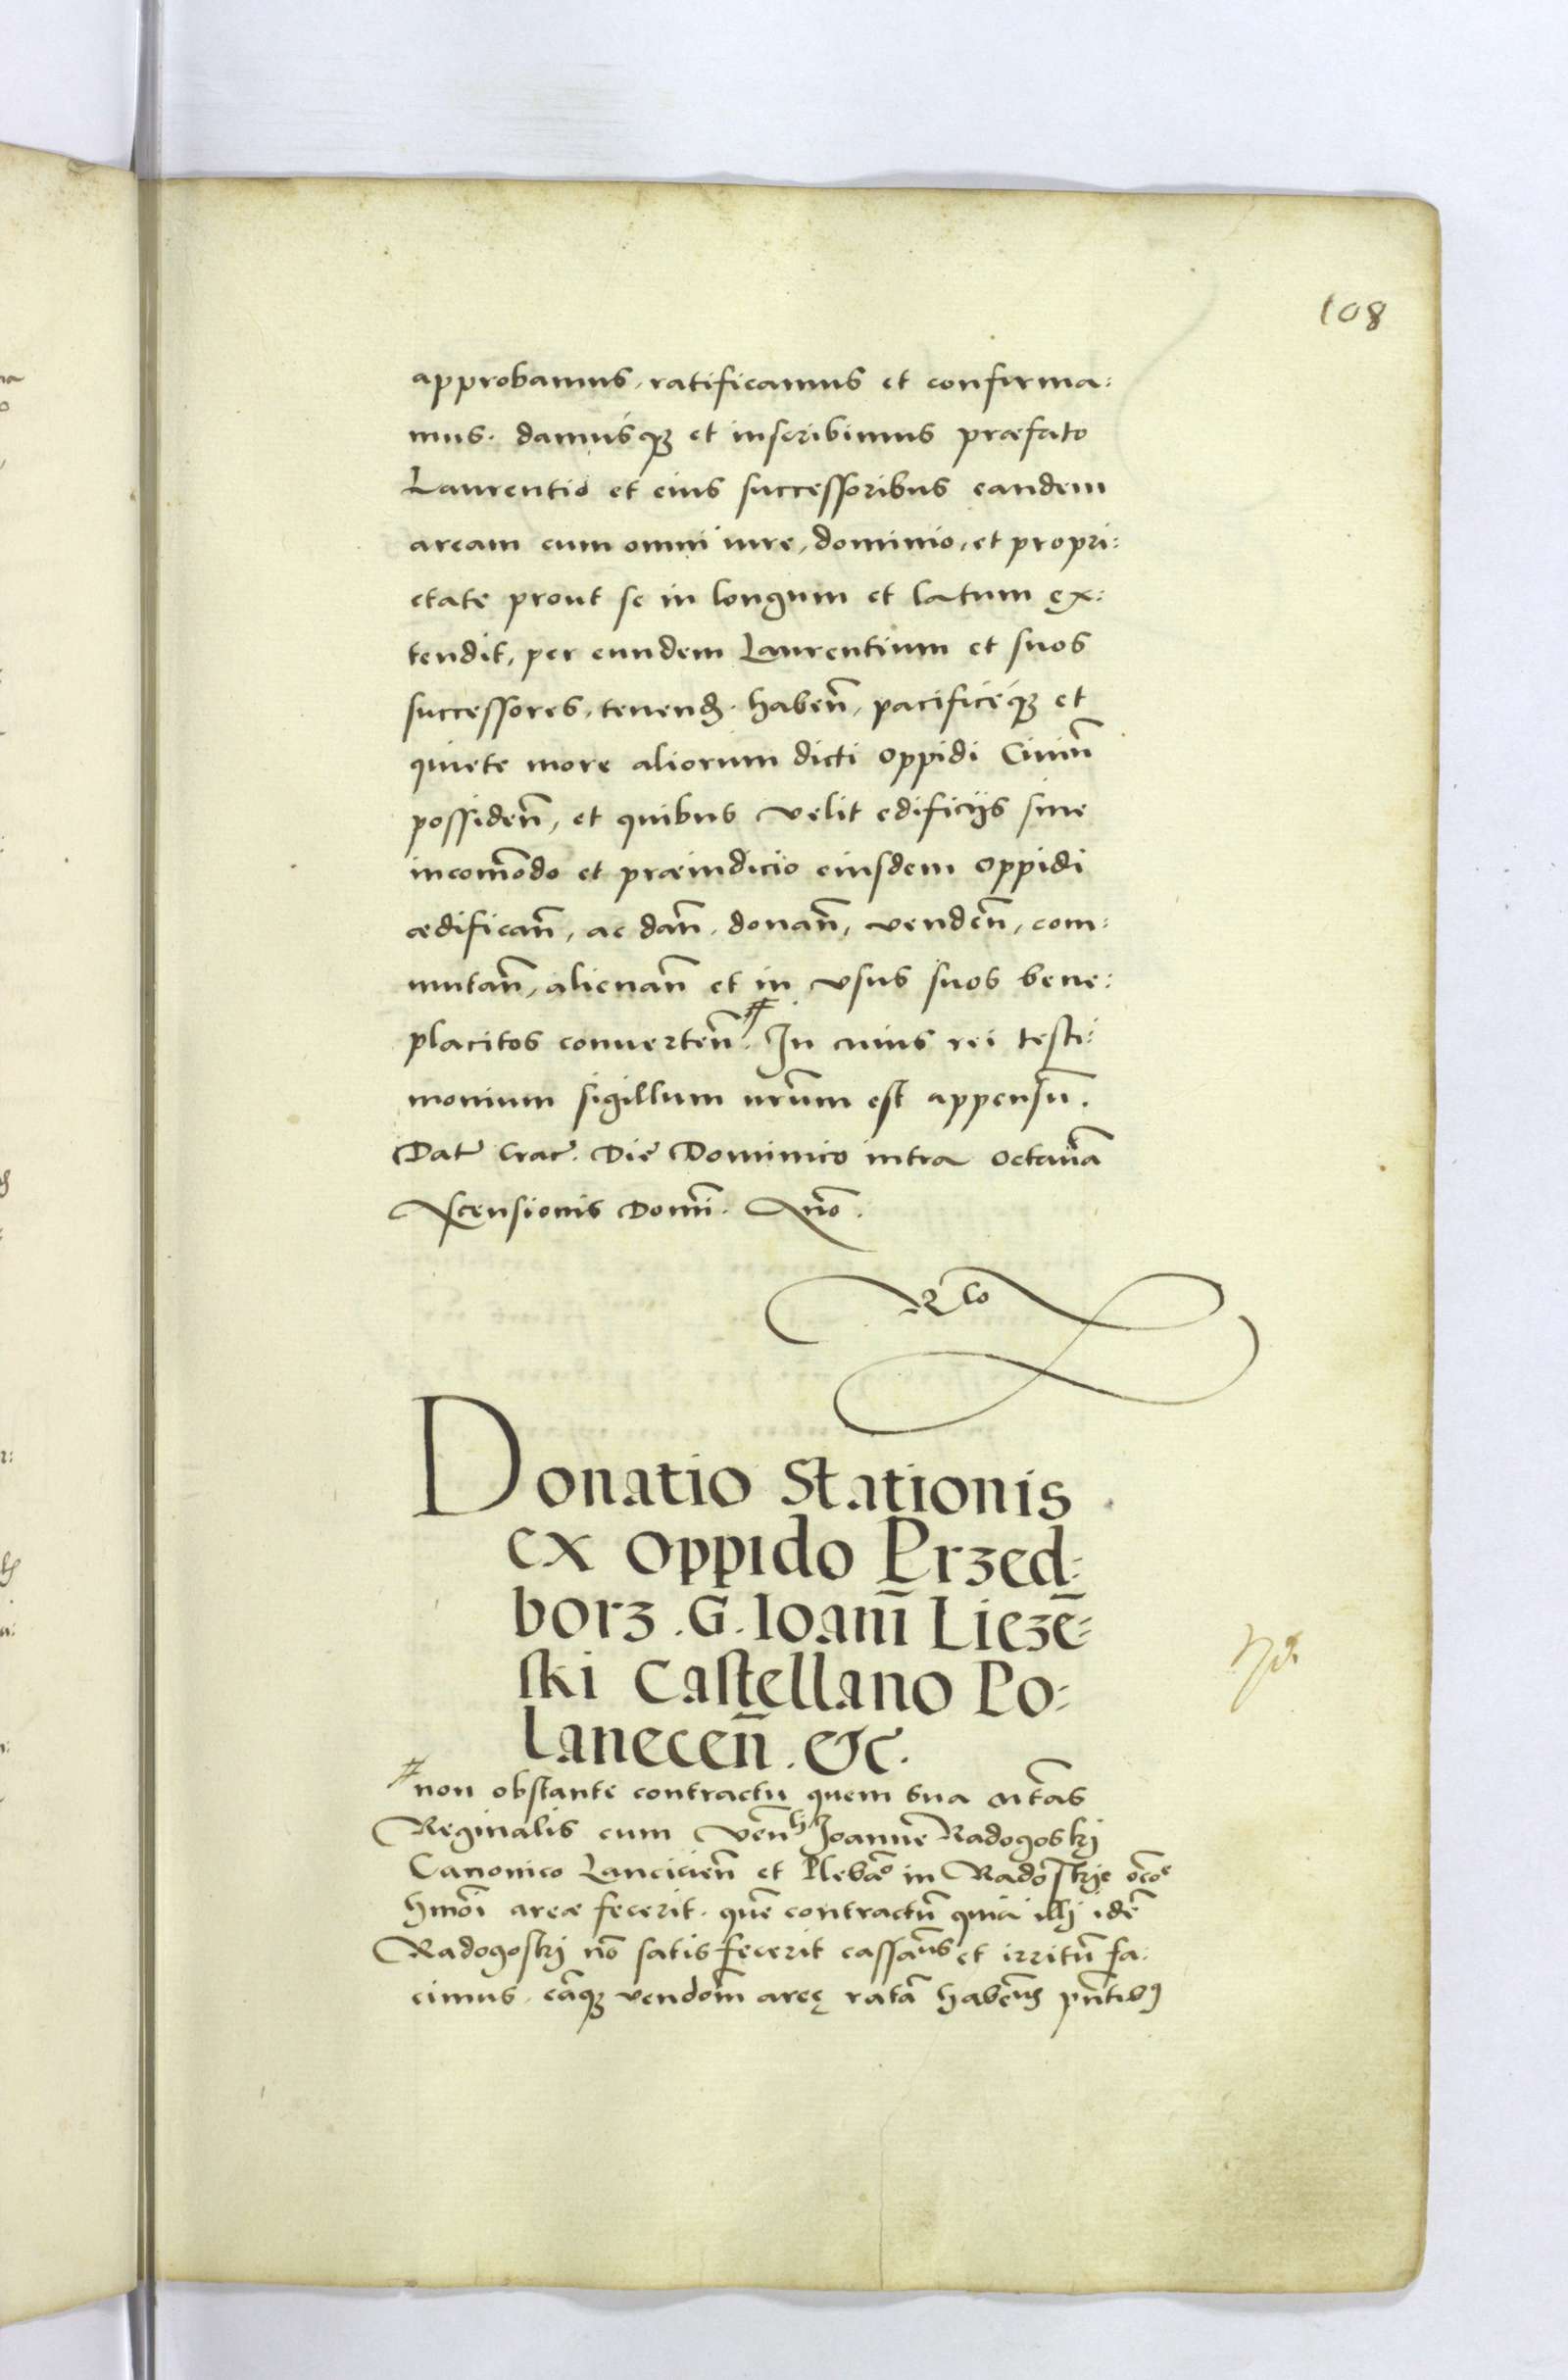 108
approbamus, ratificamus et confirma:
mus. damusq₃ et inscribimus præfato
Laurentio et eius successoribus eandem
aream cum omni iure, dominio, et propri:
etate prout se in longum et latum ex:
tendit, per eundem Laurentium et suos
successores, tenend. haben̄, pacificeq₃ et
quiete more aliorum dicti oppidi Ciuiū
possiden̄, et quibus velit edificijs sine
incom̄odo et præiudicio eiusdem oppidi
ædifican̄, ac dan̄, donan̄, venden̄, com:
mutan̄, alienan̄ et in vsus suos bene:
placitos conuerten̄. # In cuius rei testi:
monium sigillum nrum est appensū.
Dat Crac. Die Dominico intra octauā
Ascensionis Domi. Anno.
Donatio Stationis
ex oppido Przed:
borz. G. Ioanī Liezē:
ski Castellano Po:
lanecen̄. &c.
# non obstante contractu quem sua Mtas
Reginalis cum Ven Joanne Radogoski
Canonico Lancicien̄ et Plebāo in Radoskije
hmoi areæ fecerit. quē contractū quia illj idē
Radogoskj nō satisfecerit cassamus et irritū fa:
cimus. eāq₃ vendom̄ areę ratā habemus pn̄tibus